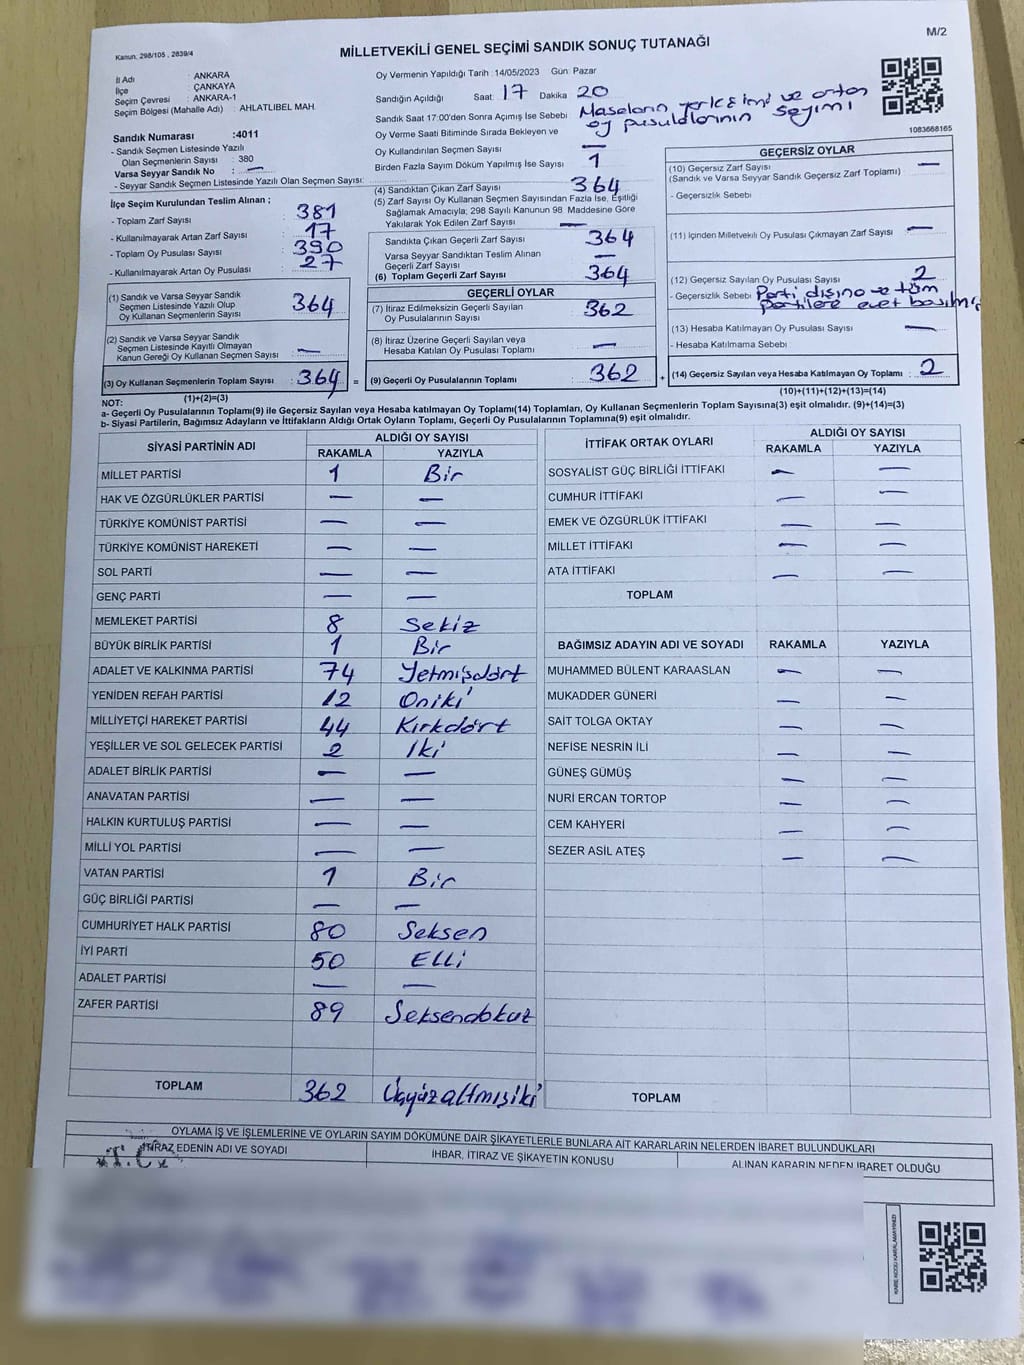 M/2
Kanun, 298/105 , 2839/4
MİLLETVEKİLİ GENEL SEÇİMİ SANDIK SONUÇ TUTANAĞI
İl Adı : ANKARA
İlçe : ÇANKAYA
Seçim Çevresi : ANKARA-1
Seçim Bölgesi (Mahalle Adı) : AHLATLIBEL MAH.
Sandık Numarası :4011
- Sandık Seçmen Listesinde Yazılı
Olan Seçmenlerin Sayısı : 380
Varsa Seyyar Sandık No : —
- Seyyar Sandık Seçmen Listesinde Yazılı Olan Seçmen Sayısı:
İlçe Seçim Kurulundan Teslim Alınan ;
- Toplam Zarf Sayısı : 381
- Kullanılmayarak Artan Zarf Sayısı : 17
- Toplam Oy Pusulası Sayısı : 390
- Kullanılmayarak Artan Oy Pusulası : 27
(1) Sandık ve Varsa Seyyar Sandık
Seçmen Listesinde Yazılı Olup
Oy Kullanan Seçmenlerin Sayısı : 364
(2) Sandık ve Varsa Seyyar Sandık
Seçmen Listesinde Kayıtlı Olmayan
Kanun Gereği Oy Kullanan Seçmen Sayısı : —
(3) Oy Kullanan Seçmenlerin Toplam Sayısı : 364
(1)+(2)=(3)
Oy Vermenin Yapıldığı Tarih :14/05/2023 Gün: Pazar
Sandığın Açıldığı Saat: 17 Dakika 20
Sandık Saat 17:00'den Sonra Açımış İse Sebebi Masaların yerleşimi ve artan
oy pusulalarının sayımı
Oy Verme Saati Bitiminde Sırada Bekleyen ve
Oy Kullandırılan Seçmen Sayısı : —
Birden Fazla Sayım Döküm Yapılmış İse Sayısı : 1
(4) Sandıktan Çıkan Zarf Sayısı : 364
(5) Zarf Sayısı Oy Kullanan Seçmen Sayısından Fazla İse, Eşitliği
Sağlamak Amacıyla; 298 Sayılı Kanunun 98 Maddesine Göre
Yakılarak Yok Edilen Zarf Sayısı : —
Sandıkta Çıkan Geçerli Zarf Sayısı : 364
Varsa Seyyar Sandıktan Teslim Alınan
Geçerli Zarf Sayısı : —
(6) Toplam Geçerli Zarf Sayısı : 364
GEÇERLİ OYLAR
(7) İtiraz Edilmeksizin Geçerli Sayılan
Oy Pusulalarının Sayısı : 362
(8) İtiraz Üzerine Geçerli Sayılan veya
Hesaba Katılan Oy Pusulası Toplamı : —
= (9) Geçerli Oy Pusulalarının Toplamı : 362
1083668165
GEÇERSİZ OYLAR
(10) Geçersiz Zarf Sayısı : —
(Sandık ve Varsa Seyyar Sandık Geçersiz Zarf Toplamı)
- Geçersizlik Sebebi :
(11) İçinden Milletvekili Oy Pusulası Çıkmayan Zarf Sayısı : —
(12) Geçersiz Sayılan Oy Pusulası Sayısı : 2
- Geçersizlik Sebebi : Parti dışına ve tüm
partilere evet basılmış
(13) Hesaba Katılmayan Oy Pusulası Sayısı : —
- Hesaba Katılmama Sebebi :
+ (14) Geçersiz Sayılan veya Hesaba Katılmayan Oy Toplamı : 2
(10)+(11)+(12)+(13)=(14)
NOT:
a- Geçerli Oy Pusulalarının Toplamı(9) ile Geçersiz Sayılan veya Hesaba katılmayan Oy Toplamı(14) Toplamları, Oy Kullanan Seçmenlerin Toplam Sayısına(3) eşit olmalıdır. (9)+(14)=(3)
b- Siyasi Partilerin, Bağımsız Adayların ve İttifakların Aldığı Ortak Oyların Toplamı, Geçerli Oy Pusulalarının Toplamına(9) eşit olmalıdır.
SİYASİ PARTİNİN ADI ALDIĞI OY SAYISI
RAKAMLA YAZIYLA
MİLLET PARTİSİ 1 Bir
HAK VE ÖZGÜRLÜKLER PARTİSİ — —
TÜRKİYE KOMÜNİST PARTİSİ — —
TÜRKİYE KOMÜNİST HAREKETİ — —
SOL PARTİ — —
GENÇ PARTİ — —
MEMLEKET PARTİSİ 8 Sekiz
BÜYÜK BİRLİK PARTİSİ 1 Bir
ADALET VE KALKINMA PARTİSİ 74 Yetmişdört
YENİDEN REFAH PARTİSİ 12 Oniki
MİLLİYETÇİ HAREKET PARTİSİ 44 Kırkdört
YEŞİLLER VE SOL GELECEK PARTİSİ 2 İki
ADALET BİRLİK PARTİSİ — —
ANAVATAN PARTİSİ — —
HALKIN KURTULUŞ PARTİSİ — —
MİLLİ YOL PARTİSİ — —
VATAN PARTİSİ 1 Bir
GÜÇ BİRLİĞİ PARTİSİ — —
CUMHURİYET HALK PARTİSİ 80 Seksen
İYİ PARTİ 50 Elli
ADALET PARTİSİ — —
ZAFER PARTİSİ 89 Seksendokuz
TOPLAM 362 Üçyüzaltmışiki
İTTİFAK ORTAK OYLARI ALDIĞI OY SAYISI
RAKAMLA YAZIYLA
SOSYALİST GÜÇ BİRLİĞİ İTTİFAKI — —
CUMHUR İTTİFAKI — —
EMEK VE ÖZGÜRLÜK İTTİFAKI — —
MİLLET İTTİFAKI — —
ATA İTTİFAKI — —
TOPLAM
BAĞIMSIZ ADAYIN ADI VE SOYADI RAKAMLA YAZIYLA
MUHAMMED BÜLENT KARAASLAN — —
MUKADDER GÜNERİ — —
SAİT TOLGA OKTAY — —
NEFİSE NESRİN İLİ — —
GÜNEŞ GÜMÜŞ — —
NURİ ERCAN TORTOP — —
CEM KAHYERİ — —
SEZER ASİL ATEŞ — —
TOPLAM
OYLAMA İŞ VE İŞLEMLERİNE VE OYLARIN SAYIM DÖKÜMÜNE DAİR ŞİKAYETLERLE BUNLARA AİT KARARLARIN NELERDEN İBARET BULUNDUKLARI
İTİRAZ EDENİN ADI VE SOYADI İHBAR, İTİRAZ VE ŞİKAYETİN KONUSU ALINAN KARARIN NEDEN İBARET OLDUĞU
T.C.